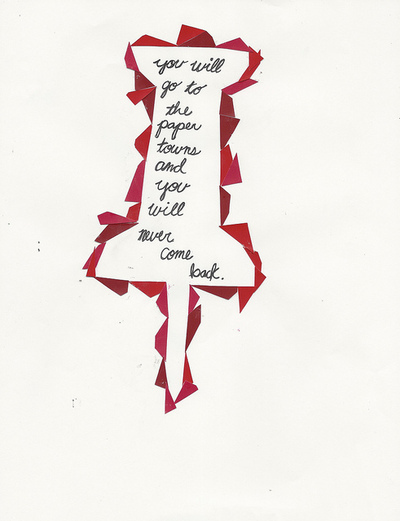 you will
go to
the
paper
towns
and
you
will
never
come
back.